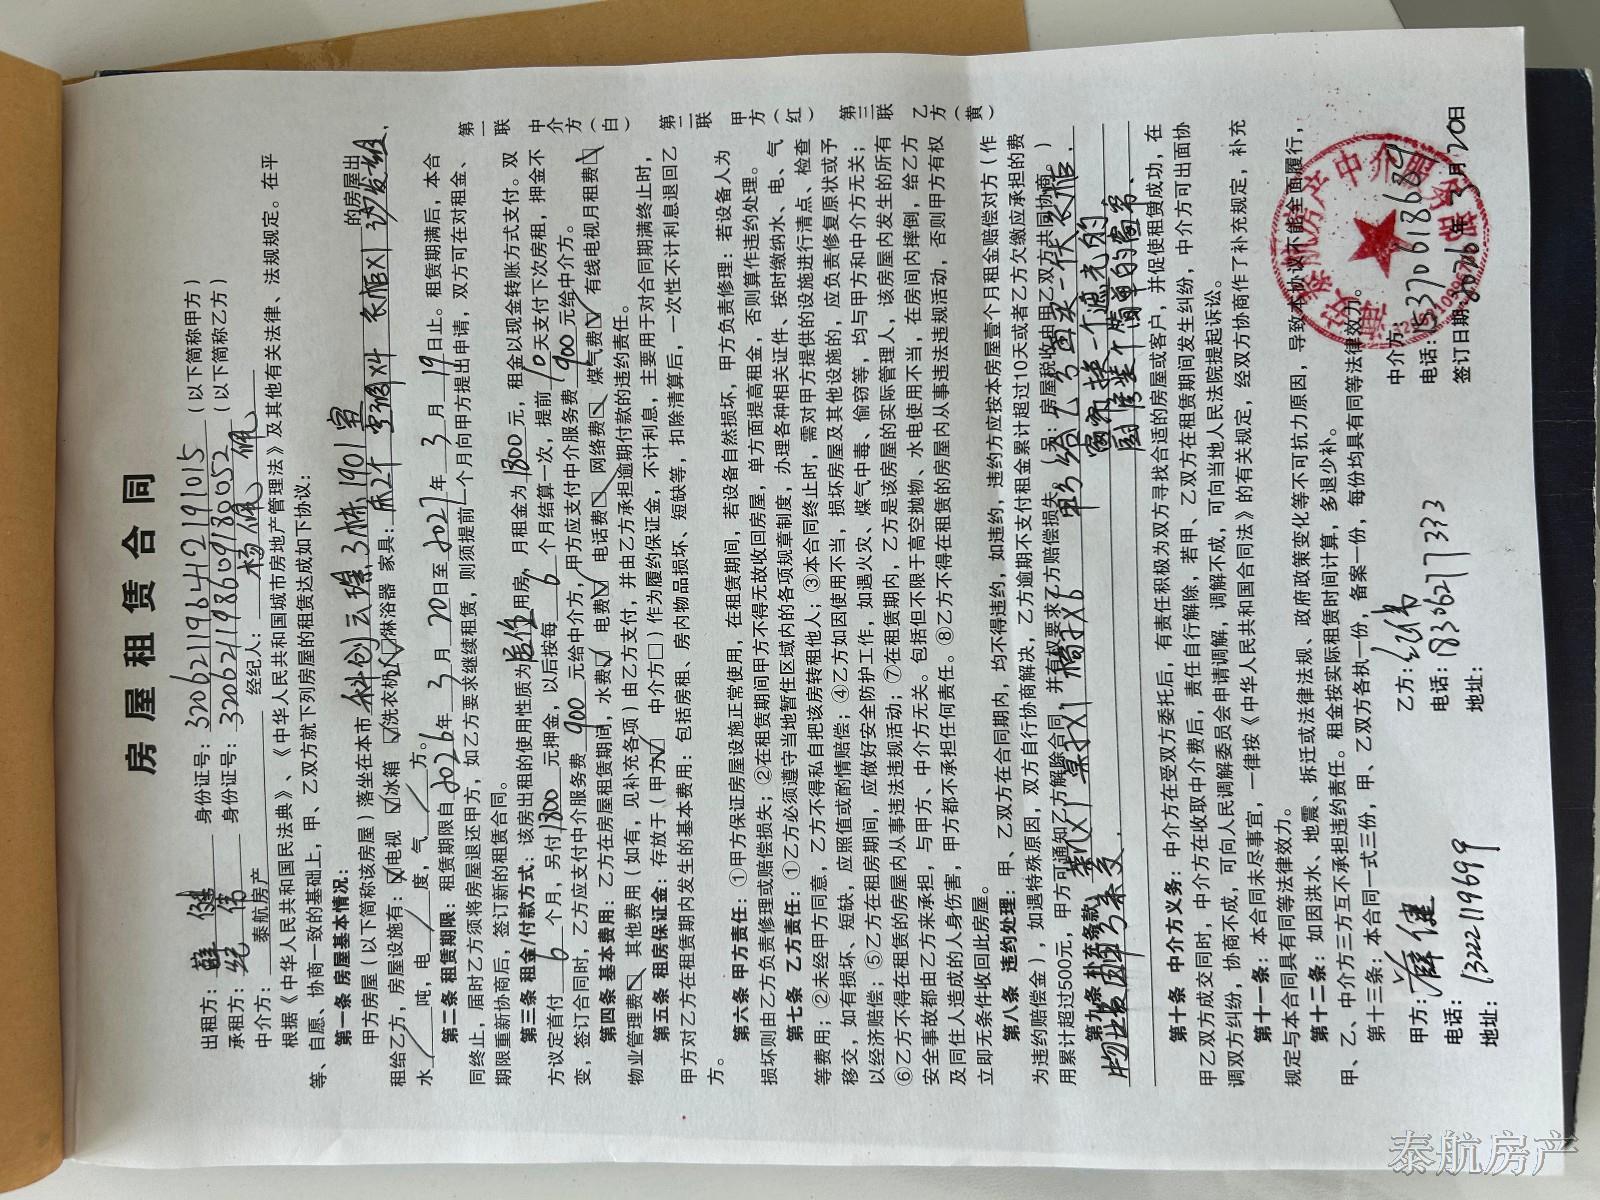 房屋租赁合同
出租方：薛健 身份证号：320621196442191015 （以下简称甲方）
承租方：纪伟 身份证号：320621198609180052 （以下简称乙方）
中介方：泰航房产 经纪人：杨佩佩
根据《中华人民共和国民法典》、《中华人民共和国城市房地产管理法》及其他有关法律、法规规定。在平
等、自愿、协商一致的基础上，甲、乙双方就下列房屋的租赁达成如下协议：
第一条 房屋基本情况：
甲方房屋（以下简称该房屋）落坐在本市 科创云璟3栋1901室 的房屋出
租给乙方，房屋设施有：☑电视 ☑冰箱 ☑洗衣机 ☑淋浴器 家具：床2个 空调X4 衣柜X1 沙发1组.
水／吨，电／度，气／方。
第二条 租赁期限：租赁期限自2026年3月20日至2027年3月19日止。租赁期满后，本合
同终止，届时乙方须将房屋退还甲方，如乙方要求继续租赁，则须提前一个月向甲方提出申请，双方可在对租金、
期限重新协商后，签订新的租赁合同。
第三条 租金/付款方式：该房出租的使用性质为居住用房，月租金为1300元，租金以现金转账方式支付。双
方议定首付6个月，另付1300元押金，以后按每6个月结算一次，提前10天支付下次房租，押金不
变，签订合同时，乙方应支付中介服务费900元给中介方，甲方应支付中介服务费900元给中介方。
第四条 基本费用：乙方在房屋租赁期间，水费☑ 电费☑ 电话费☑ 网络费☑ 煤气费☑ 有线电视月租费☑
物业管理费☑ 其他费用（如有，见补充各项）由乙方支付，并由乙方承担逾期付款的违约责任。
第五条 租房保证金：存放于（甲方☑ 中介方□）作为履约保证金，不计利息，主要用于对合同期满终止时，
甲方对乙方在租赁期内发生的基本费用：包括房租、房内物品损坏、短缺等，扣除清算后，一次性不计利息退回乙
方。
第六条 甲方责任：①甲方保证房屋设施正常使用，在租赁期间，若设备自然损坏，甲方负责修理：若设备人为
损坏则由乙方负责修理或赔偿损失；②在租赁期间甲方不得无故收回房屋，单方面提高租金，否则算作违约处理。
第七条 乙方责任：①乙方必须遵守当地暂住区域内的各项规章制度，办理各种相关证件、按时缴纳水、电、气
等费用；②未经甲方同意，乙方不得私自把该房转租他人；③本合同终止时，需对甲方提供的设施进行清点、检查
移交，如有损坏、短缺，应照值或酌情赔偿；④乙方如因使用不当，损坏房屋及其他设施的，应负责修复原状或予
以经济赔偿；⑤乙方在租房期间，应做好安全防护工作，如遇火灾、煤气中毒、偷窃等，均与甲方和中介方无关；
⑥乙方不得在租赁的房屋内从事违法违规活动；⑦在租赁期内，乙方是该房屋的实际管理人，该房屋内发生的所有
安全事故都由乙方来承担，与甲方、中介方无关。包括但不限于高空抛物、水电使用不当，在房间内摔倒，给乙方
及同住人造成的人身伤害，甲方都不承担任何责任。⑧乙方不得在租赁的房屋内从事违法违规活动，否则甲方有权
立即无条件收回此房屋。
第八条 违约处理：甲、乙双方在合同期内，均不得违约，如违约，违约方应按本房屋壹个月租金赔偿对方（作
为违约赔偿金），如遇特殊原因，双方自行协商解决，乙方逾期不支付租金累计超过10天或者乙方欠缴应承担的费
用累计超过500元，甲方可通知乙方解除合同，并有权要求乙方赔偿损失（另：房屋税收由甲乙双方共同协商。）
第九条 补充条款 桌子X1 椅子X6 甲方给大方面买一张衣柜.
窗帘换一个遮光的
物业费由甲方承受. 厨房装个简单的窗帘.
第十条 中介方义务：中介方在受双方委托后，有责任积极为双方寻找合适的房屋或客户，并促使租赁成功，在
甲乙双方成交同时，中介方在收取中介费后，责任自行解除，若甲、乙双方在租赁期间发生纠纷，中介方可出面协
调双方纠纷，协商不成，可向人民调解委员会申请调解，调解不成，可向当地人民法院提起诉讼。
第十一条：本合同未尽事宜，一律按《中华人民共和国合同法》的有关规定，经双方协商作了补充规定，补充
规定与本合同具有同等法律效力。
第十二条：如因洪水、地震、拆迁或法律法规、政府政策变化等不可抗力原因，导致本协议不能全面履行，
甲、乙、中介方三方互不承担违约责任。租金按实际租赁时间计算，多退少补。
第十三条：本合同一式三份，甲、乙双方各执一份，备案一份，每份均具有同等法律效力。
甲方：薛健 乙方：纪伟 中介方：
电话：13222119699 电话：18336217333 电话：15370618689
地址： 地址： 签订日期：2026年3月20日
第一联 中介方（白） 第二联 甲方（红） 第三联 乙方（黄）
泰航房产中介服务部
泰航房产